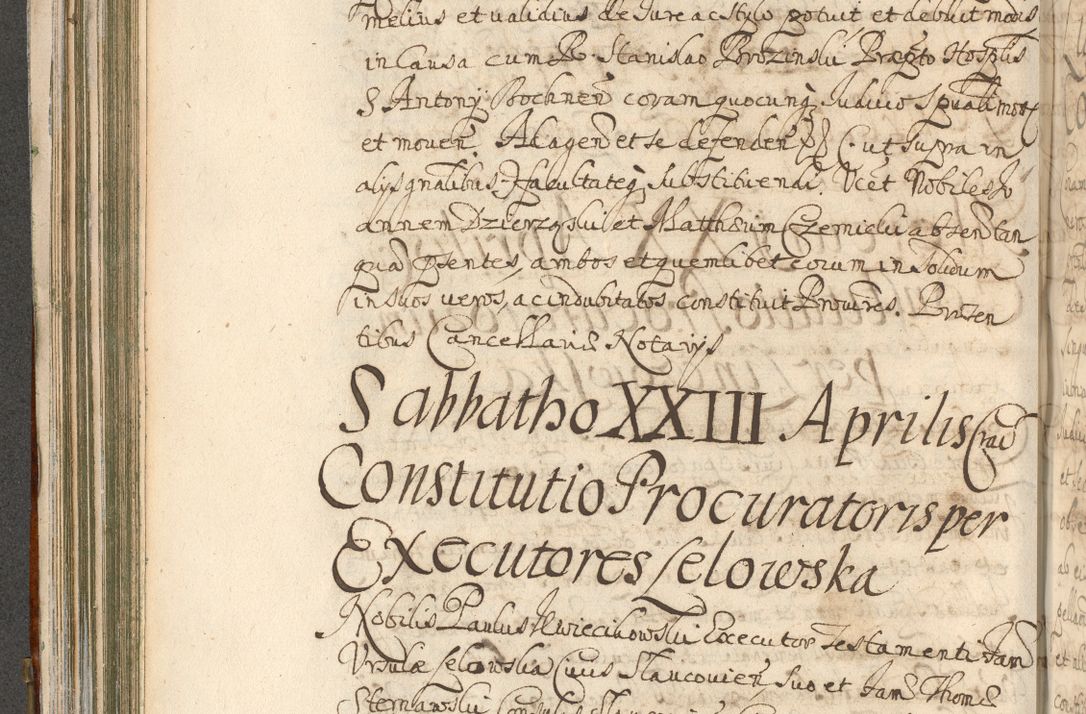 melius et validius de Jure ac stylo potuit et debuit modis
in Causa cum R. Stanislao Brozinski Præpto Hosplis
S Antonij Bochnen coram quocunq Judicio Spuali mot
et moven Ad agend et se defenden ut supra in
alijs gnalibus Facultateq substituendi, Ucet Nobiles Jo
annem Dzierzgski et Matthæum Czernicki absen tan
qua psentes, ambos et quemlibet eorum in solidum
in suos veros, ac indubitatos constituit Procures. Præsen
tibus Cancellariæ Notarijs
Sabbatho XXIII Aprilis Crac
Constitutio Procuratoris per
Executores Lelowska
Nobilis Paulus Kwiecikowski Executor Testamenti Fam
Ursulæ Lelowska Civis Slaucovien suo et Fam Thomæ